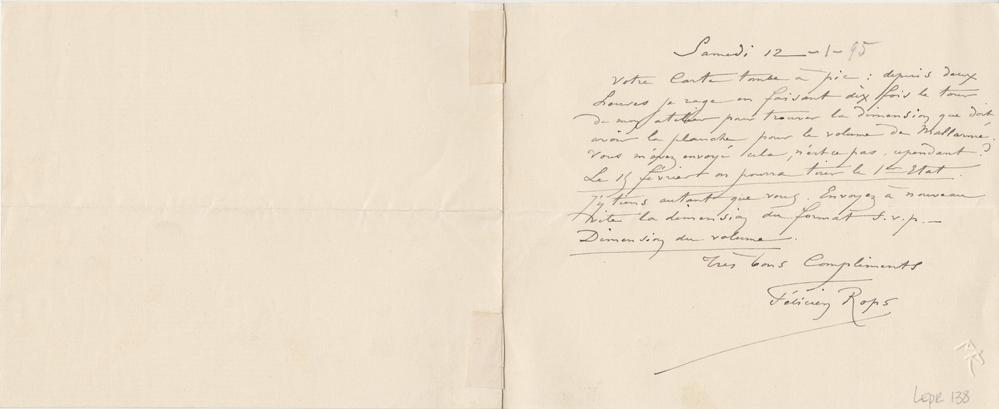 Samedi 12 - 1 - 95
Votre Carte tombe à pic : depuis deux
heures je rage en faisant dix fois le tour
de mon atelier pour trouver la dimension que doit
avoir la planche pour le volume de Mallarmé.
Vous m'avez envoyé cela, n'est ce pas, cependant?
Le 15 février on pourra tirer le 1er Etat.
J'y tiens autant que vous. Envoyez à nouveau
vite la dimension du format s.v.p. —
Dimension du volume.
Très bons Compliments
Félicien Rops
LEpR 138